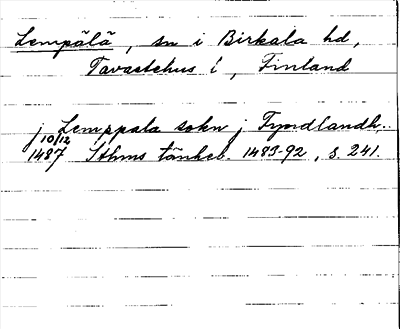 Lempälä, sn i Birkala hd,
Tavastehus l, Finland
j Lemppala sokn j Fyndlandh..
10/12
1487 Sthms tänkeb. 1483-92, s. 241.